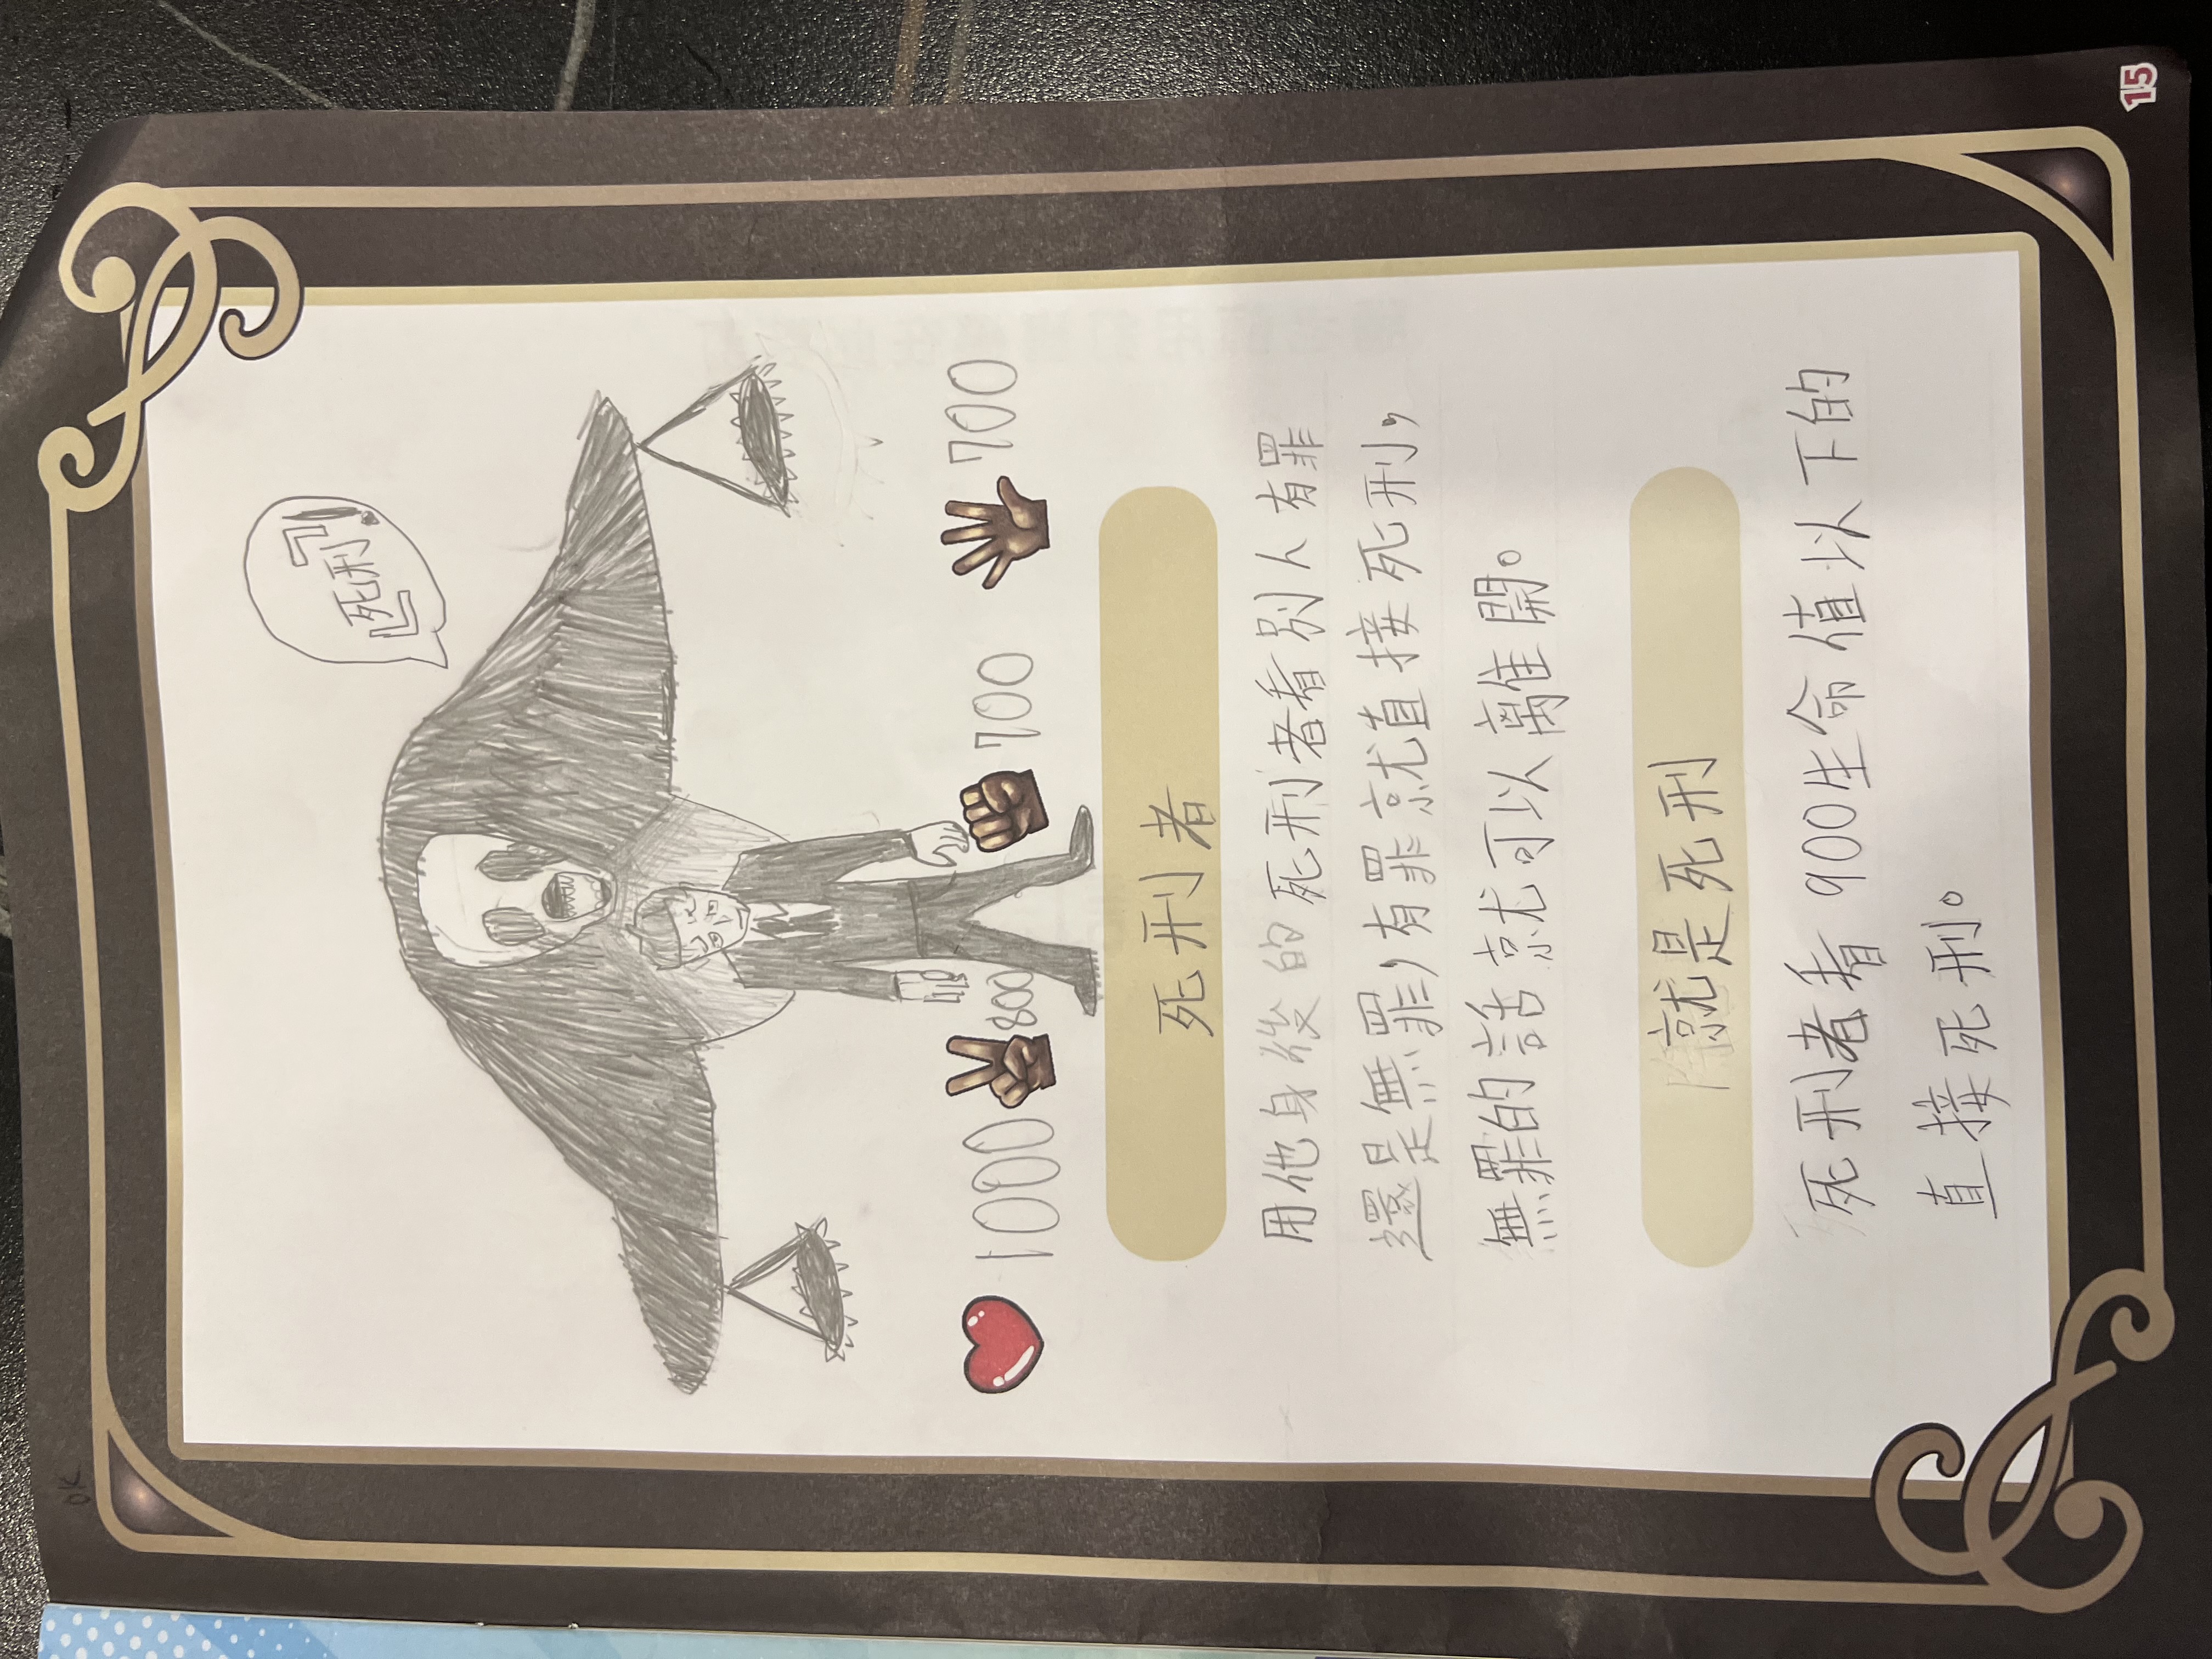 OK
「死刑」!
1000 800 700 700
死刑者
用他身後的死刑者看別人有罪
還是無罪,有罪就直接死刑,
無罪的話就可以離開。
就是死刑
死刑者看900生命值以下的
直接死刑。
15